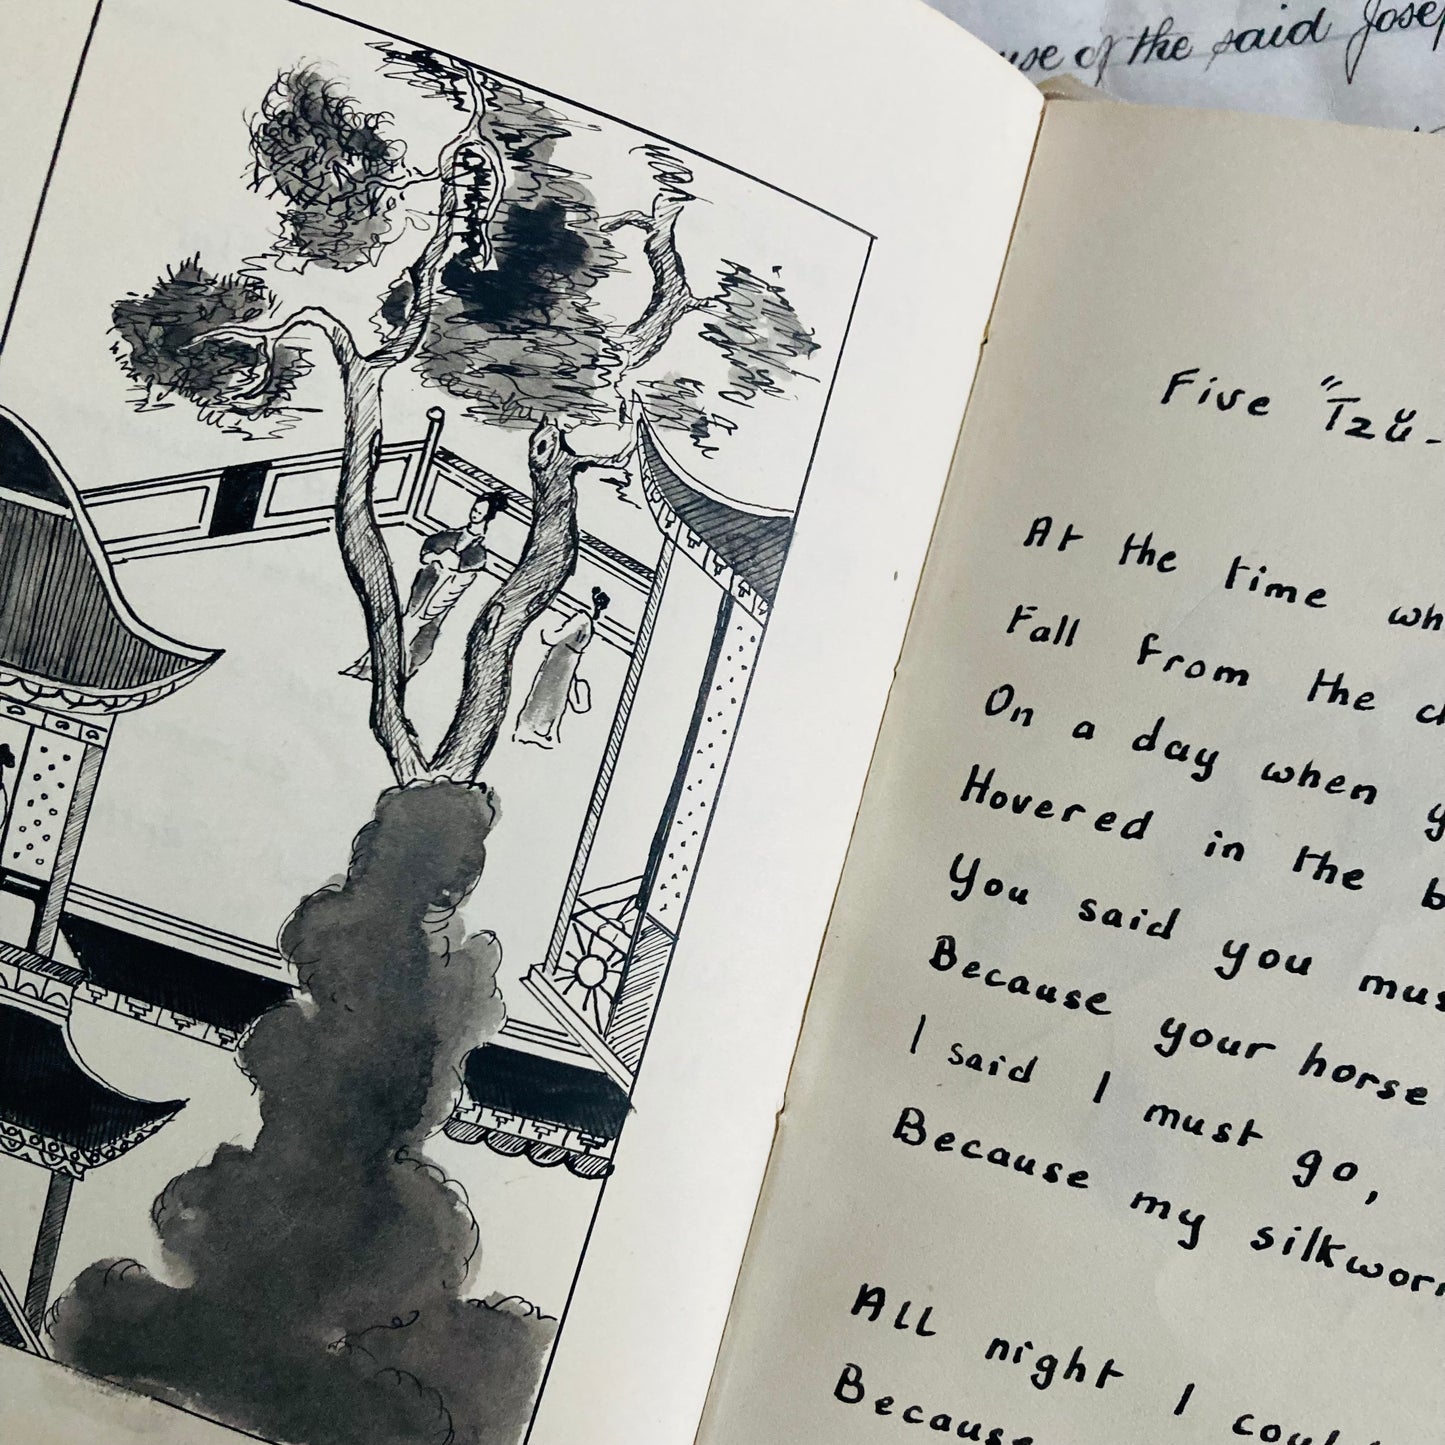 of the said
Five "Tzŭ-
At the time
Fall from the
On a day when
Hovered in the
You said you
Because your horse
I said I must go,
Because my
All night I
Because